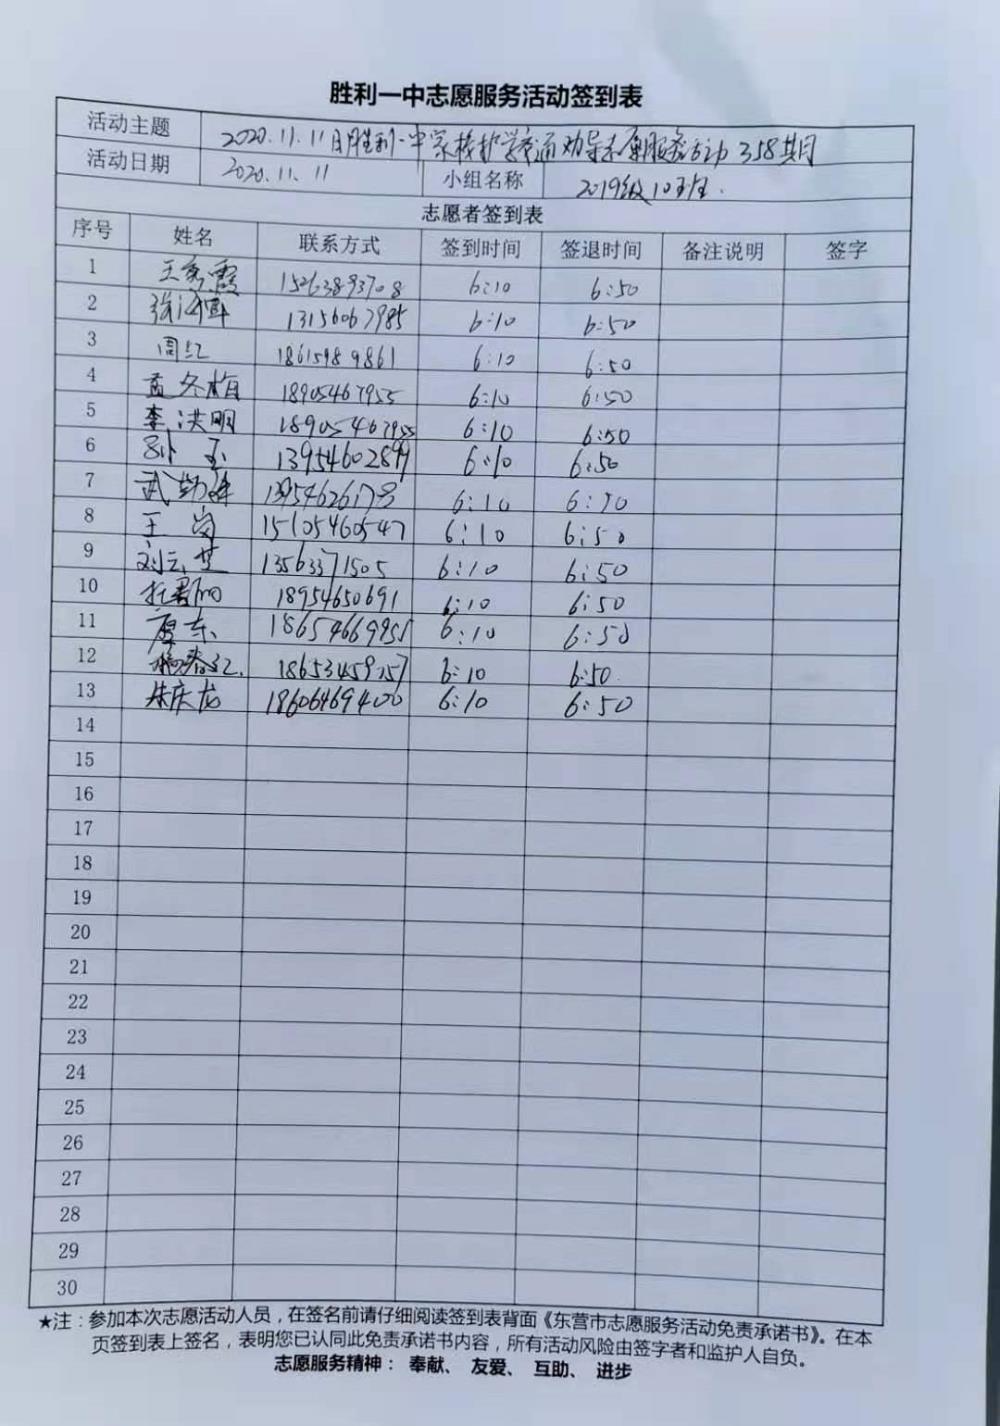 胜利一中志愿服务活动签到表
活动主题 2020.11.11日胜利一中家校护学交通劝导志愿服务活动358期
活动日期 2020.11.11 小组名称 2019级10班.
志愿者签到表
序号 姓名 联系方式 签到时间 签退时间 备注说明 签字
1 王秀霞 15263893708 6:10 6:50
2 13156067985 6:10 6:50
3 周红 18615989861 6:10 6:50
4 孟冬梅 18905467955 6:10 6:50
5 李洪明 18905467955 6:10 6:50
6 孙玉 13954602899 6:10 6:50
7 武 6:10 6:50
8 王岗 15105460547 6:10 6:50
9 刘云芝 13563371505 6:10 6:50
10 18954650691 6:10 6:50
11 18654669955 6:10 6:50
12 6:10 6:50.
13 朱庆龙 18606469400 6:10 6:50
14
15
16
17
18
19
20
21
22
23
24
25
26
27
28
29
30
★注：参加本次志愿活动人员，在签名前请仔细阅读签到表背面《东营市志愿服务活动免责承诺书》。在本
页签到表上签名，表明您已认同此免责承诺书内容，所有活动风险由签字者和监护人自负。
志愿服务精神：奉献、友爱、互助、进步